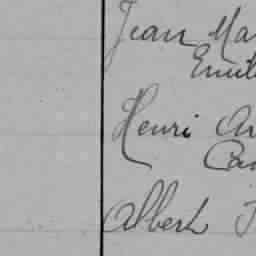 Jean Mar
Emile
Henri Ar
Cas
Albert J